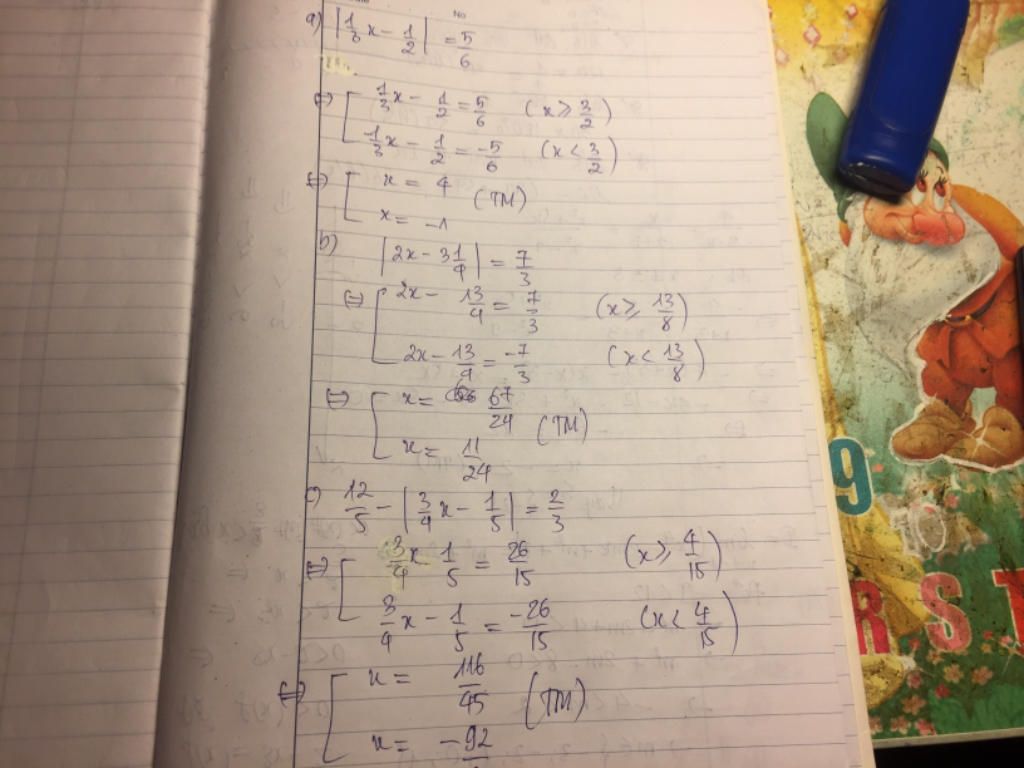 No
a) |1/3 x - 1/2| = 5/6
⇔ [ 1/3 x - 1/2 = 5/6 (x ≥ 3/2)
1/3 x - 1/2 = -5/6 (x < 3/2)
⇔ [ x = 4 (TM)
x = -1
b) |2x - 3 1/4| = 7/3
⇔ [ 2x - 13/4 = 7/3 (x ≥ 13/8)
2x - 13/4 = -7/3 (x < 13/8)
⇔ [ x = 67/24 (TM)
x = 11/24
c) 12/5 - |3/4 x - 1/5| = 2/3
⇔ [ 3/4 x - 1/5 = 26/15 (x ≥ 4/15)
3/4 x - 1/5 = -26/15 (x < 4/15)
⇔ [ x = 116/45 (TM)
x = -92
9
RST